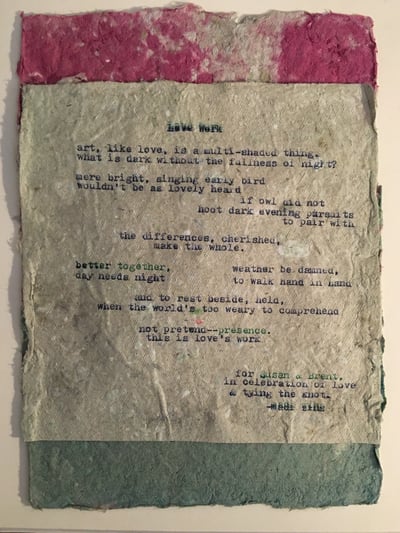 Love Work
art, like love, is a multi-shaded thing.
what is dark without the fullness of night?
mere bright, singing early bird
wouldn't be as lovely heard
if owl did not
hoot dark evening pursuits
to pair with
the differences, cherished,
make the whole.
better together,
day needs night
weather be damned,
to walk hand in hand
and to rest beside, held,
when the world's too weary to comprehend
not pretend--presence.
this is love's work
for Susan & Brent,
in celebration of love
& tying the knot!